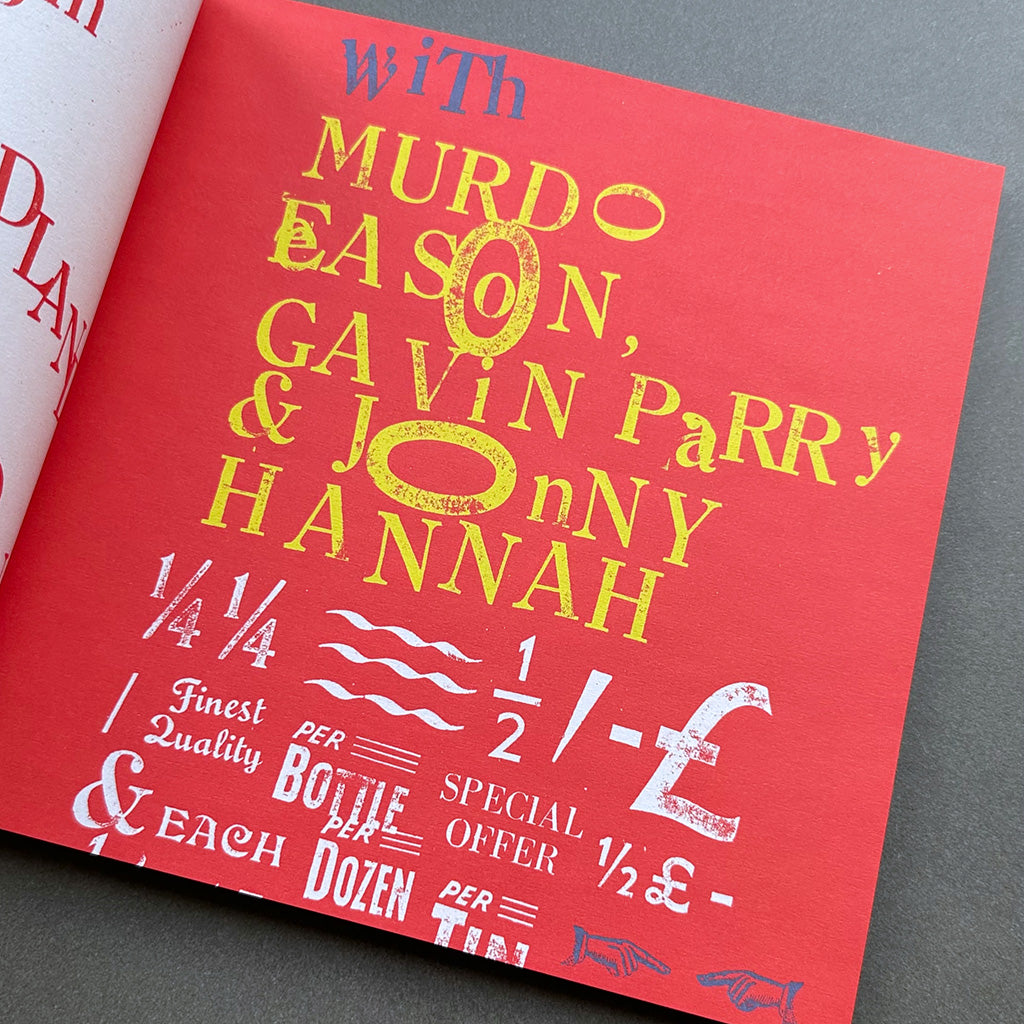 DLAN
WiTh
MURDO
EASON,
GAViN PaRRy
& JOnNY
HANNAH
1/4 1/4
1/2 / - £
/ Finest Quality
PER BOTTLE
SPECIAL OFFER
1/2 £ -
& EACH
PER DOZEN
PER TIN